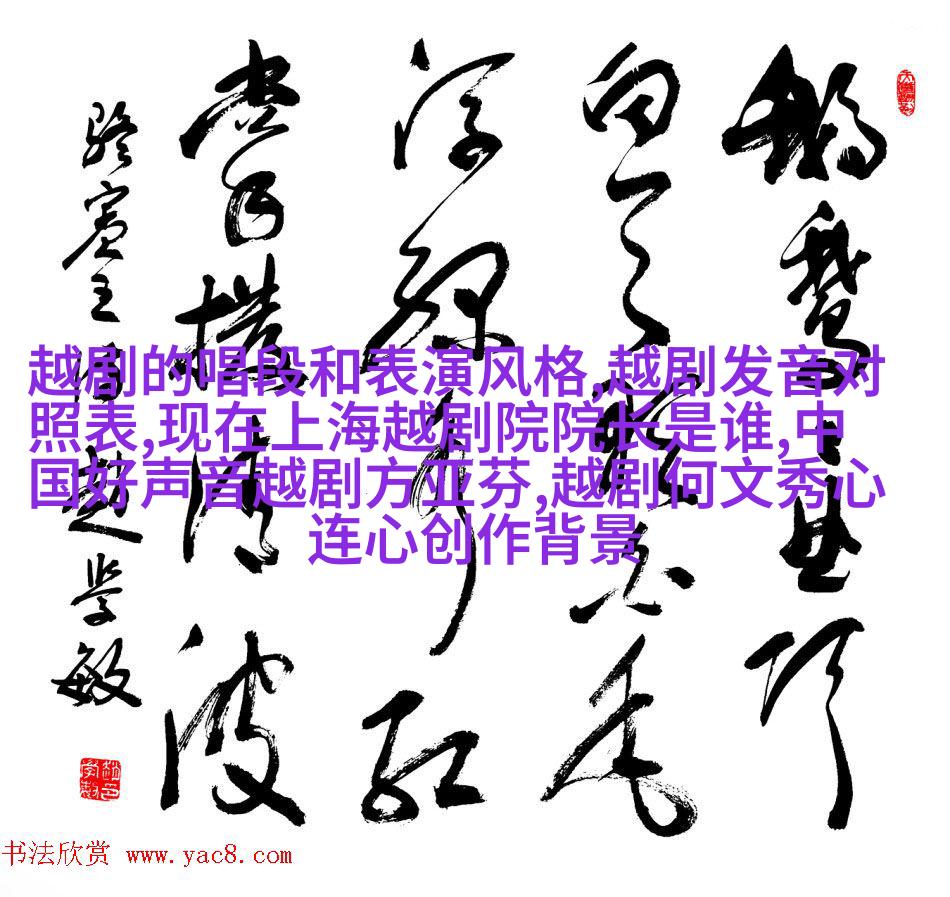 鹅鹅鹅曲项
向天歌白毛
浮绿水红
掌拨清波
骆宾王诗赵学敏
越剧的唱段和表演风格,越剧发音对
照表,现在上海越剧院院长是谁,中
国好声音越剧方亚芬,越剧何文秀心
连心创作背景
书法欣赏 www.yac8.com